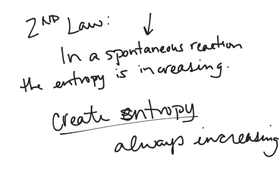 2ND Law:
In a spontaneous reaction
the entropy is increasing.
Create Entropy
always increasing